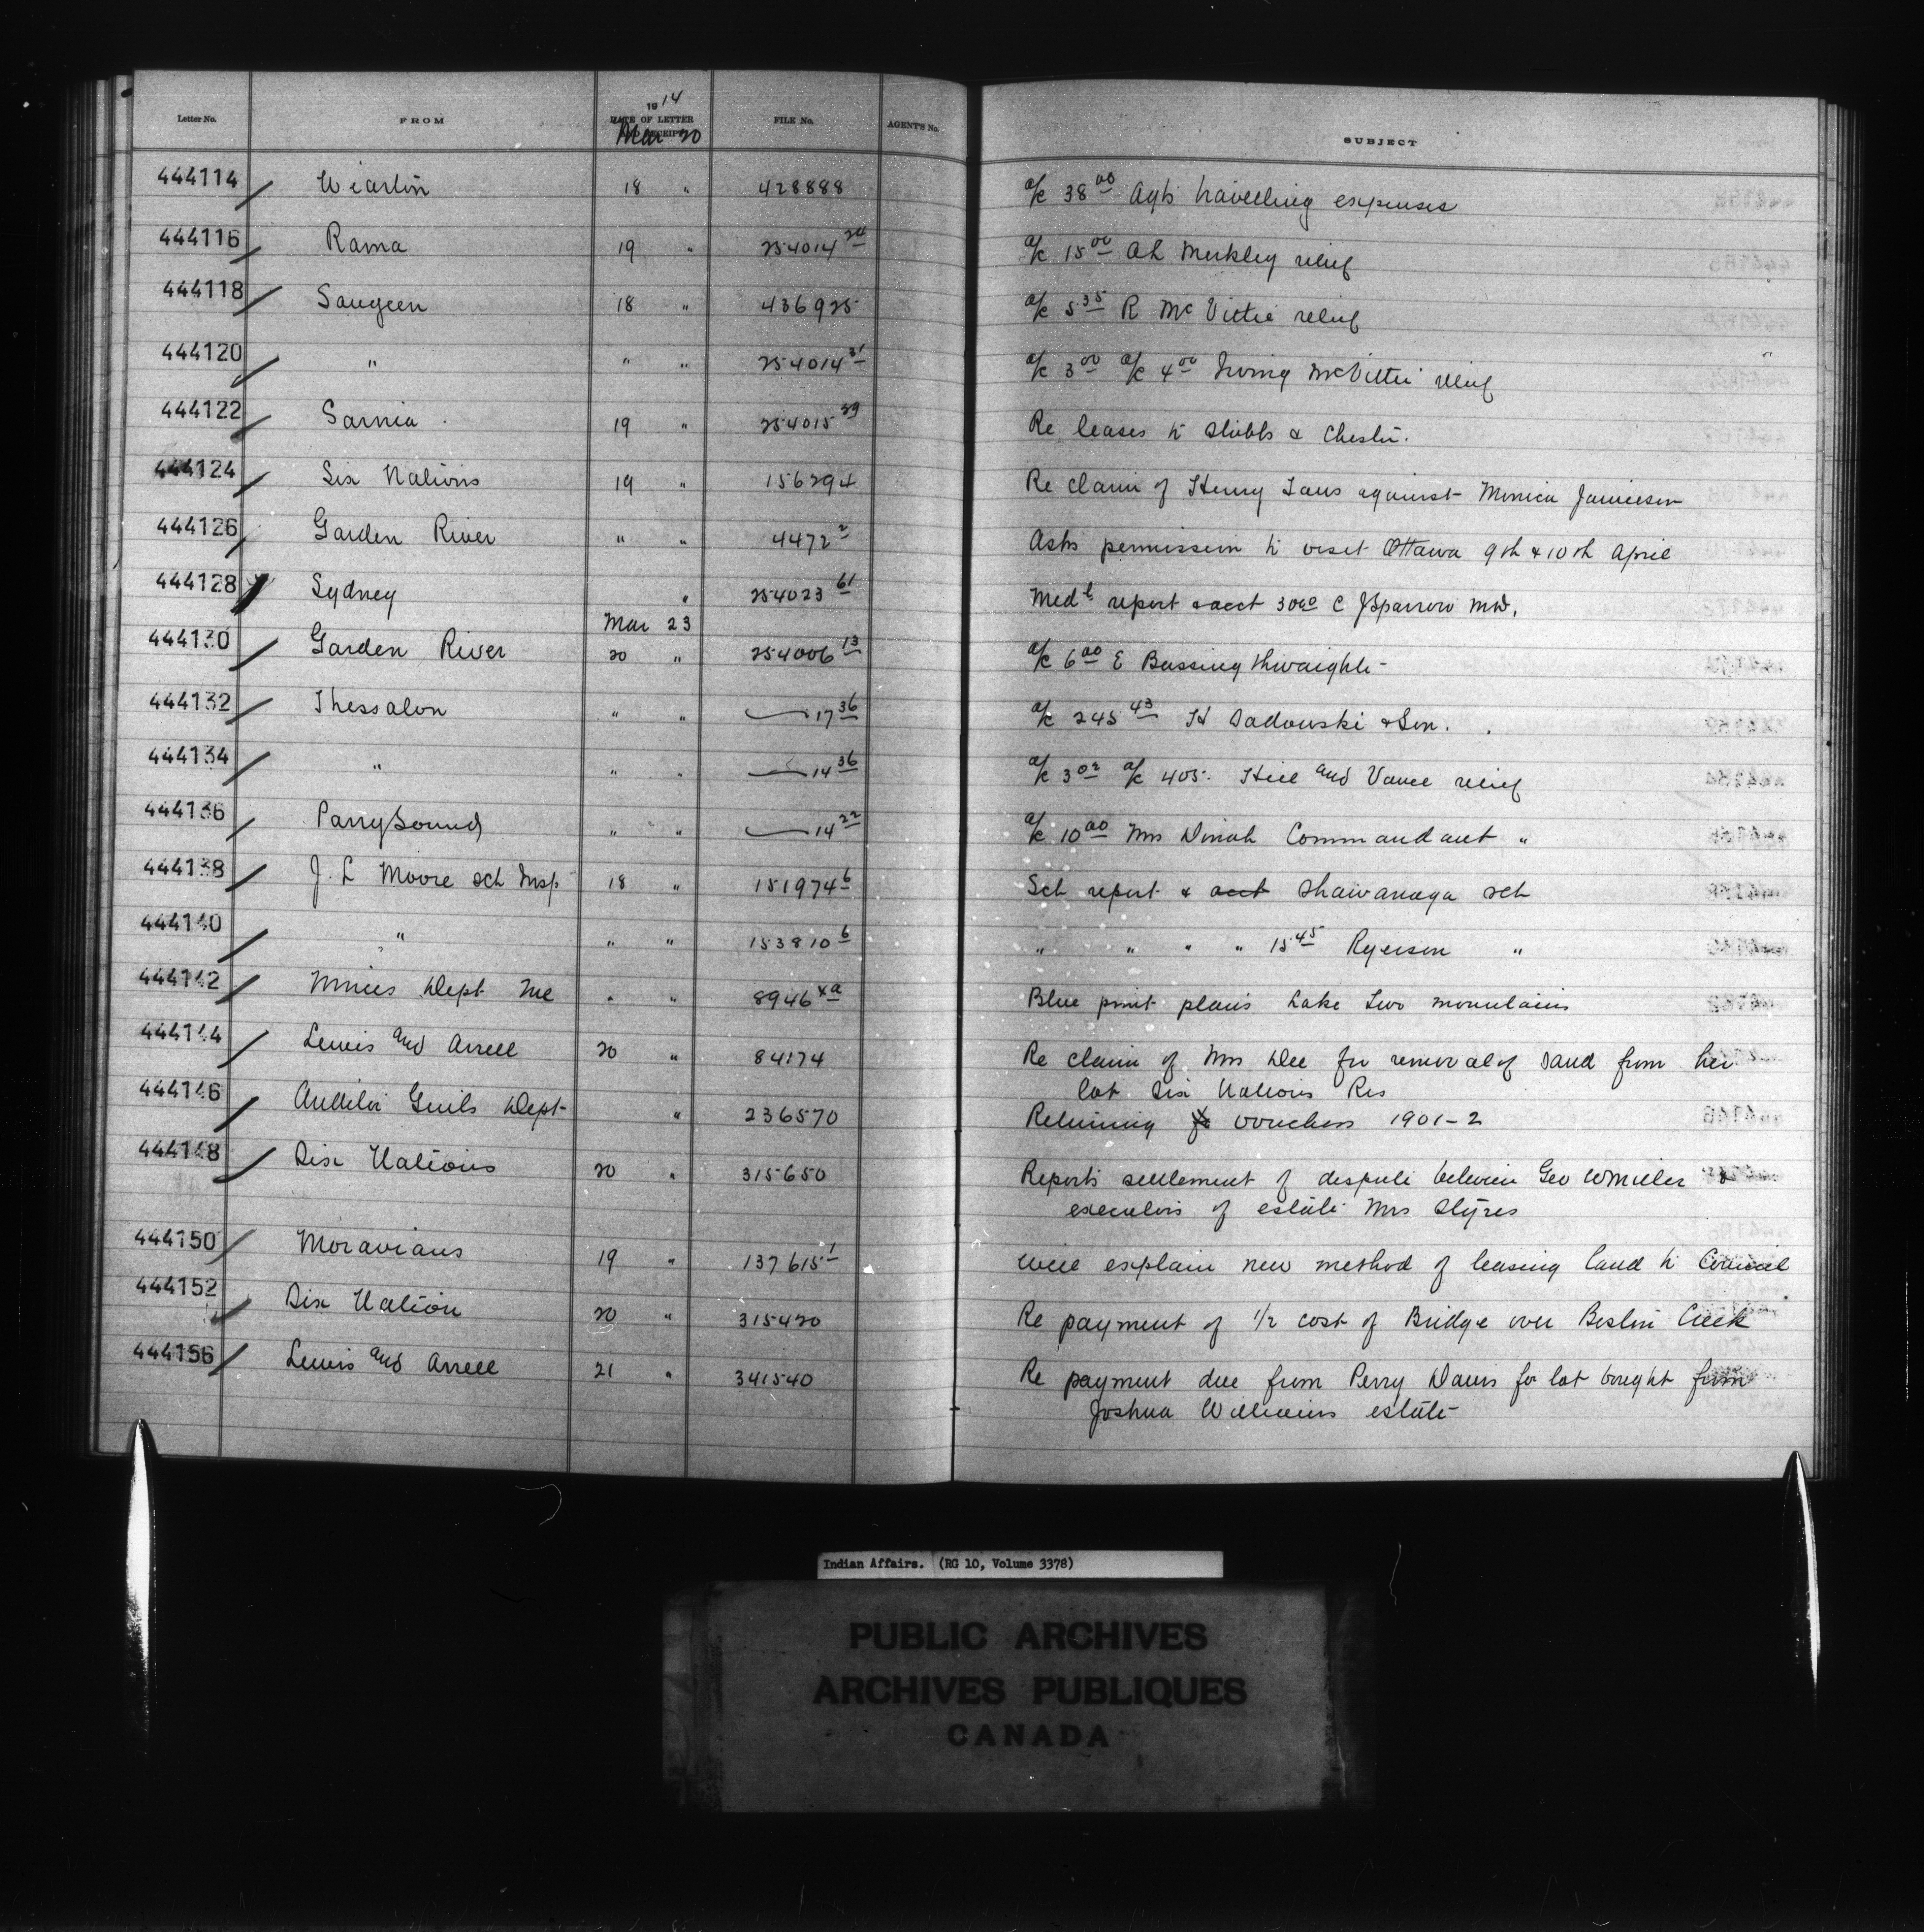 Letter No. FROM 1914 DATE OF LETTER AND RECEIPT FILE No. AGENT'S No. SUBJECT
Mar 20
444114 Wiarton 18 " 428888 a/c 38 00 Agts travelling expenses
444116 Rama 19 " 254014 24 a/c 15 00 Merkley relief
444118 Saugeen 18 " 436925 a/c 5 35 R McVittie relief
444120 " " " 254014 31 a/c 3 00 a/c 4 00 McVittie relief
444122 Sarnia 19 " 254015 Re leases to Stubbs & Chester.
444124 Six Nations 19 " 156294 Re claim of Henry against Monica Jamieson
444126 Garden River " " 4472 2 Asks permission to visit Ottawa 9th & 10th April
444128 Sydney " 254023 61 Medl report & acct C J Sparrow MD.
Mar 23
444130 Garden River 20 " 254006 13 a/c 6 00 E Bassingthwaighte
444132 Thessalon " " 17 36 a/c 245 43 H Sadowski & Son.
444134 " " " 14 36 a/c 3 02 a/c 405. Hill and Vance relief
444136 Parry Sound " " 14 22 a/c 10 00 Mrs Dinah Commandant "
444138 J. L Moore sch Insp 18 " 151974 6 Sch report & acct Shawanaga sch
444140 " " " 153810 6 " " " " 15 45 Ryerson "
444142 Mines Dept " " 8946 Blue print plans Lake Two Mountains
444144 Lewis and Arrell 20 " 84174 Re claim of Mrs Dee for removal of sand from her
lot Six Nations Res
444146 Auditor Genls Dept " 236570 Returning vouchers 1901-2
444148 Six Nations 20 " 315650 Reports settlement of dispute between Geo W Miller &
executors of estate Mrs Styres
444150 Moravians 19 " 137615 1 will explain new method of leasing land to Council
444152 Six Nation 20 " 315420 Re payment of 1/2 cost of Bridge over Creek
444156 Lewis and Arrell 21 " 341540 Re payment due from Perry Davis for lot bought from
Joshua Williams estate
Indian Affairs. (RG 10, Volume 3378)
PUBLIC ARCHIVES
ARCHIVES PUBLIQUES
CANADA